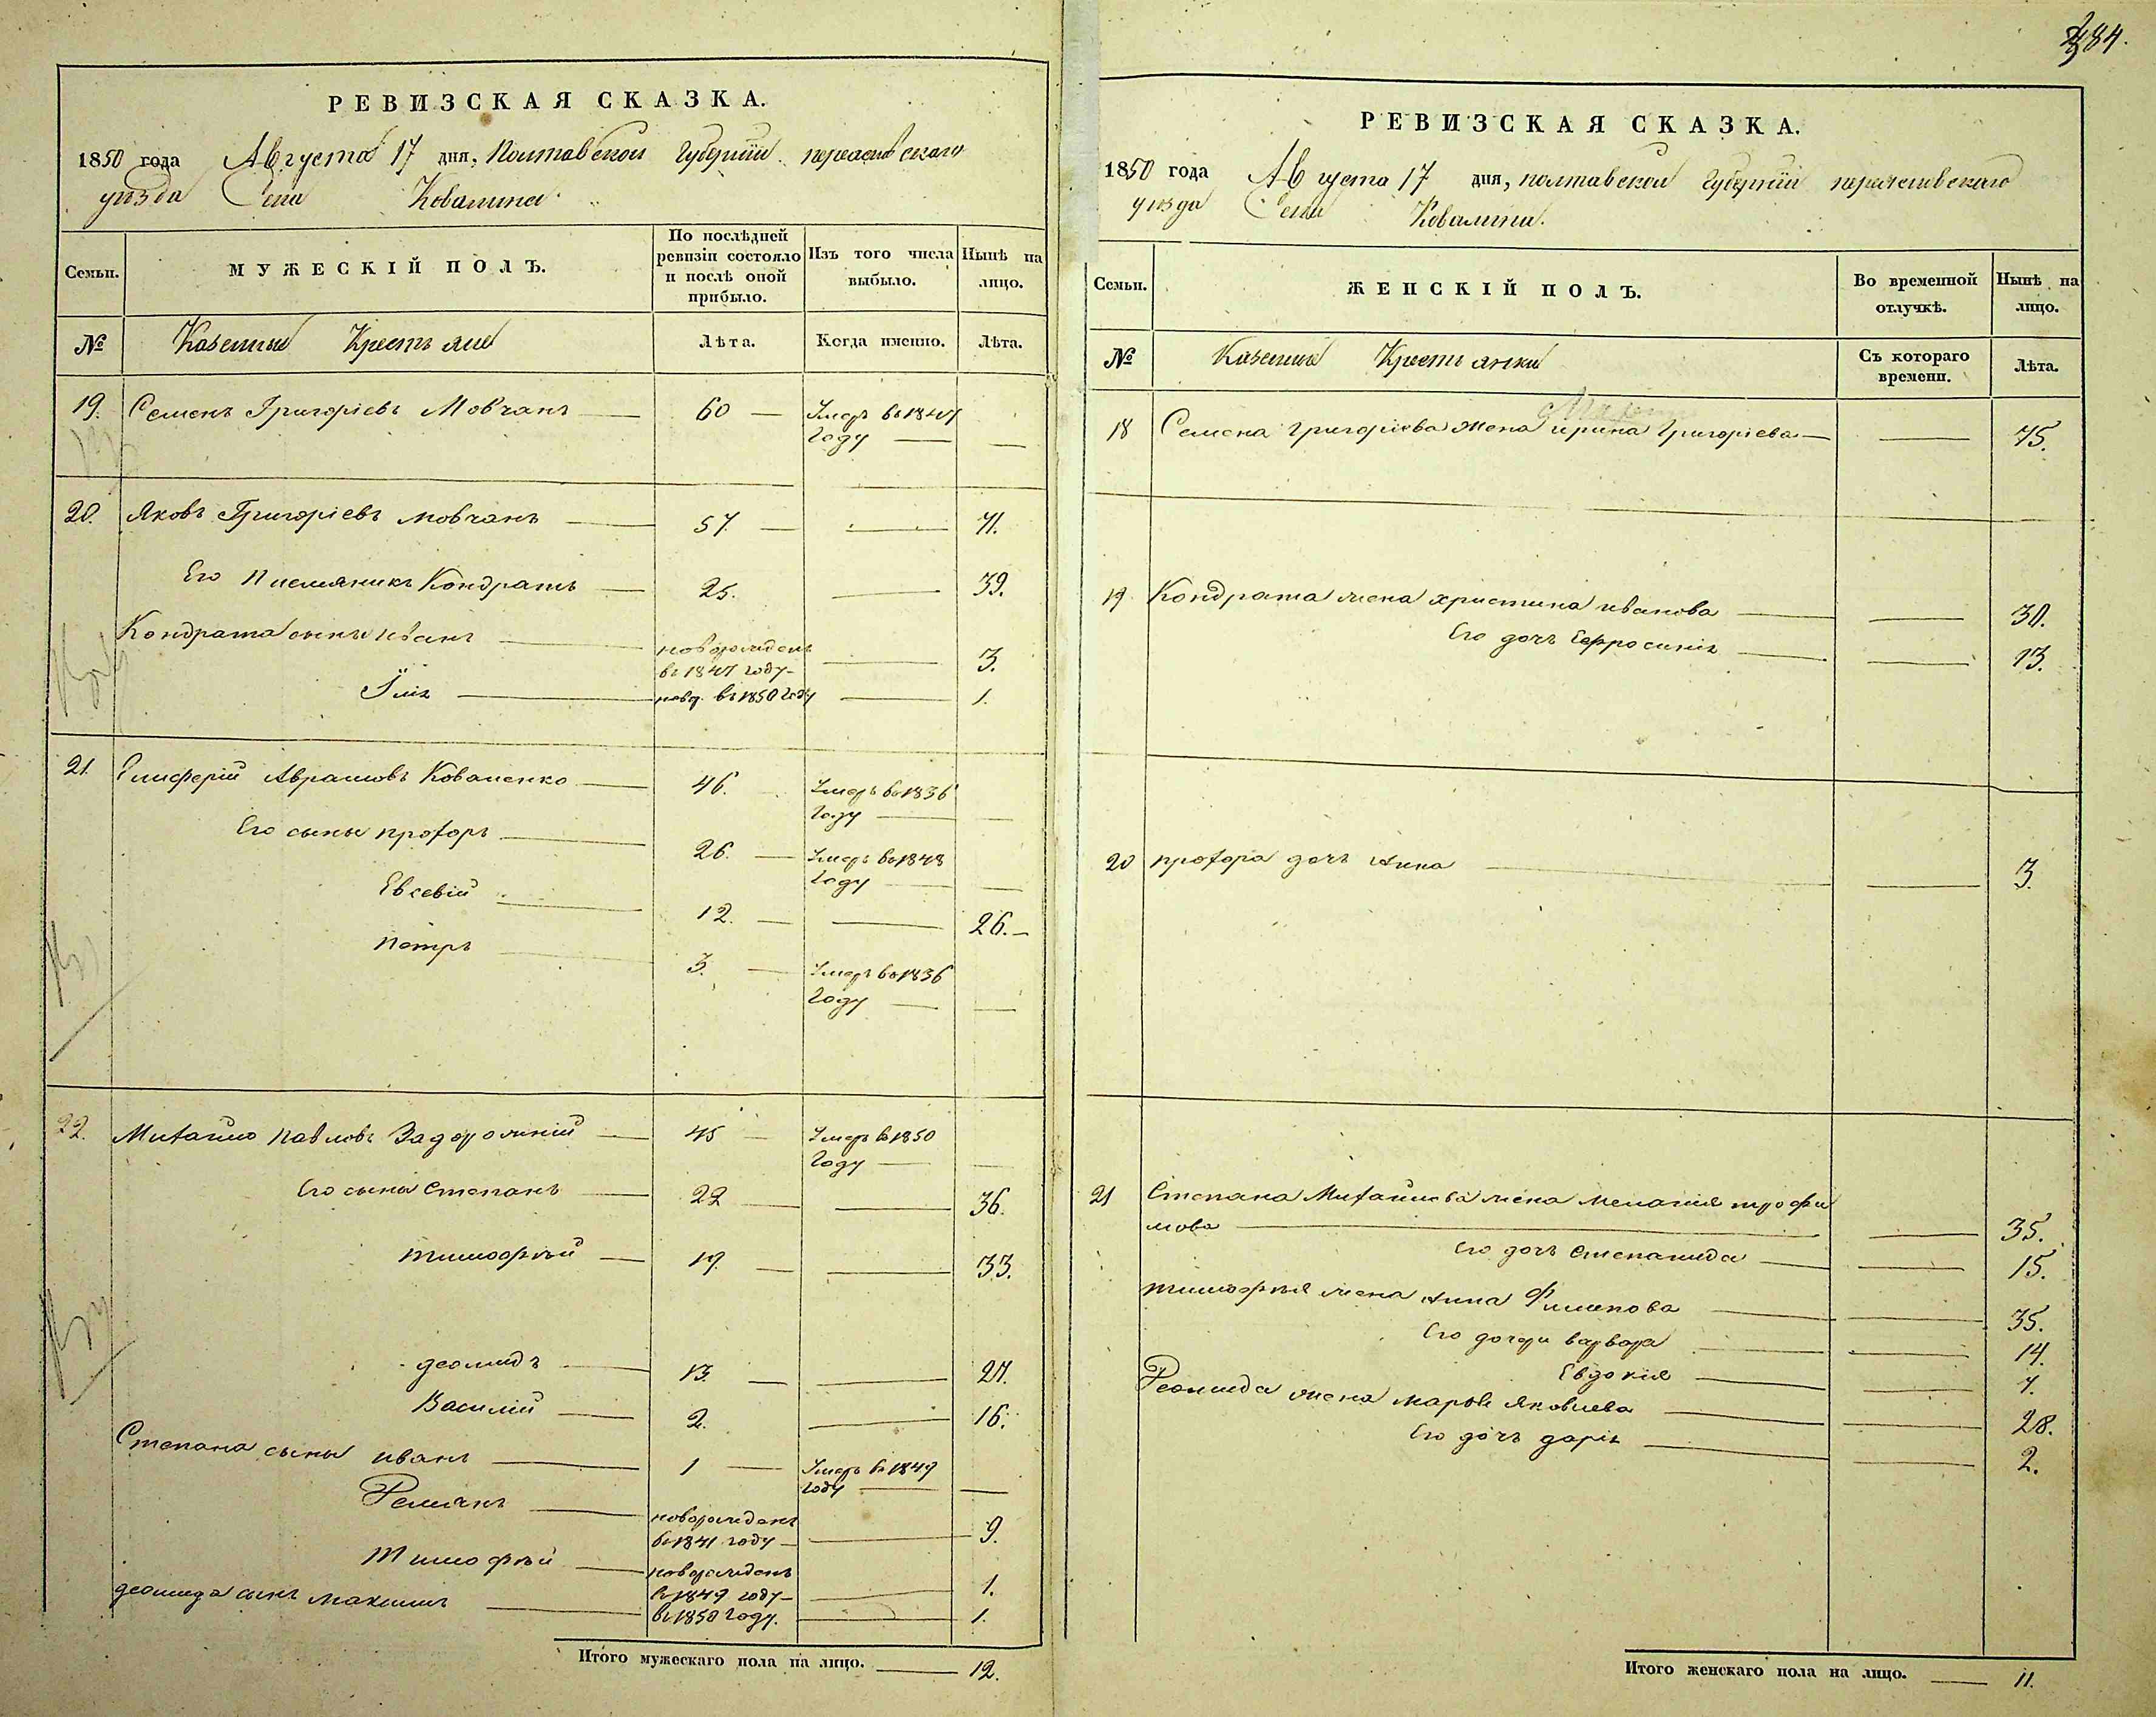 284.
РЕВИЗСКАЯ СКАЗКА.
1850 года Августа 17 дня, Полтавской Губернїи переяславского
уѣзда Села Ковалина
Семьи.
МУЖЕСКІЙ ПОЛЪ.
По послѣдней
ревизіи состояло
и послѣ оной
прибыло.
Изъ того числа
выбыло.
Нынѣ на
лицо.
№
Казенныи Крестьяне
Лѣта.
Когда именно.
Лѣта.
19. Семенъ Григорїевъ Мовчанъ 60 Умеръ въ 1847
Году
20. Яковъ Григорїевъ Мовчанъ 57. 71.
Его племяникъ Кондратъ 25. 39.
Кондрата сыны иванъ новорожденъ
въ 1847 году 3.
Їлія новор. въ 1850 Году 1.
21. Елиферїй Аврамовъ Коваленко 46. Умеръ въ 1836
Году
Его сыны прохоръ 26. Умеръ въ 1848
Году
Евсевїй 12. 26.
петръ 3. Умеръ въ 1836
Году
22. Михайло павловъ Задорожнїй 45 Умеръ въ 1850
Году
Его сыны степанъ 22 36.
тимофѣй 19. 33.
деомидъ 13. 27.
Василїй 2. 16.
Степана сыны иванъ 1 Умеръ въ 1849
году
Демянъ новорожденъ
въ 1841 году 9.
Тимофѣй новорожденъ
въ 1849 году 1.
деомида сынъ максимъ въ 1850 Году. 1.
Итого мужескаго пола на лицо. 12.
РЕВИЗСКАЯ СКАЗКА.
1850 года Августа 17 дня, полтавской Губернїи переяславского
уѣзда Села Ковалина.
Семьи.
ЖЕНСКІЙ ПОЛЪ.
Во временной
отлучкѣ.
Нынѣ на
лицо.
№
Казенные Крестьянки
Съ котораго
времени.
Лѣта.
18 Семена григорїева жена ирина Григорїева 75.
19 Кондрата жена христина иванова 30.
Его дочь Ефросинія 13.
20 прохора дочь Анна 3.
21 Степана Михайлова жена меланія трофи
мова 35.
Его дочь степанида 15.
тимофѣя жена Анна Филипова 35.
Его дочери варвара 14.
Евдокія 7.
Деомида жена марья Яковлева 28.
Его дочь дарія 2.
Итого женскаго пола на лицо. 11.